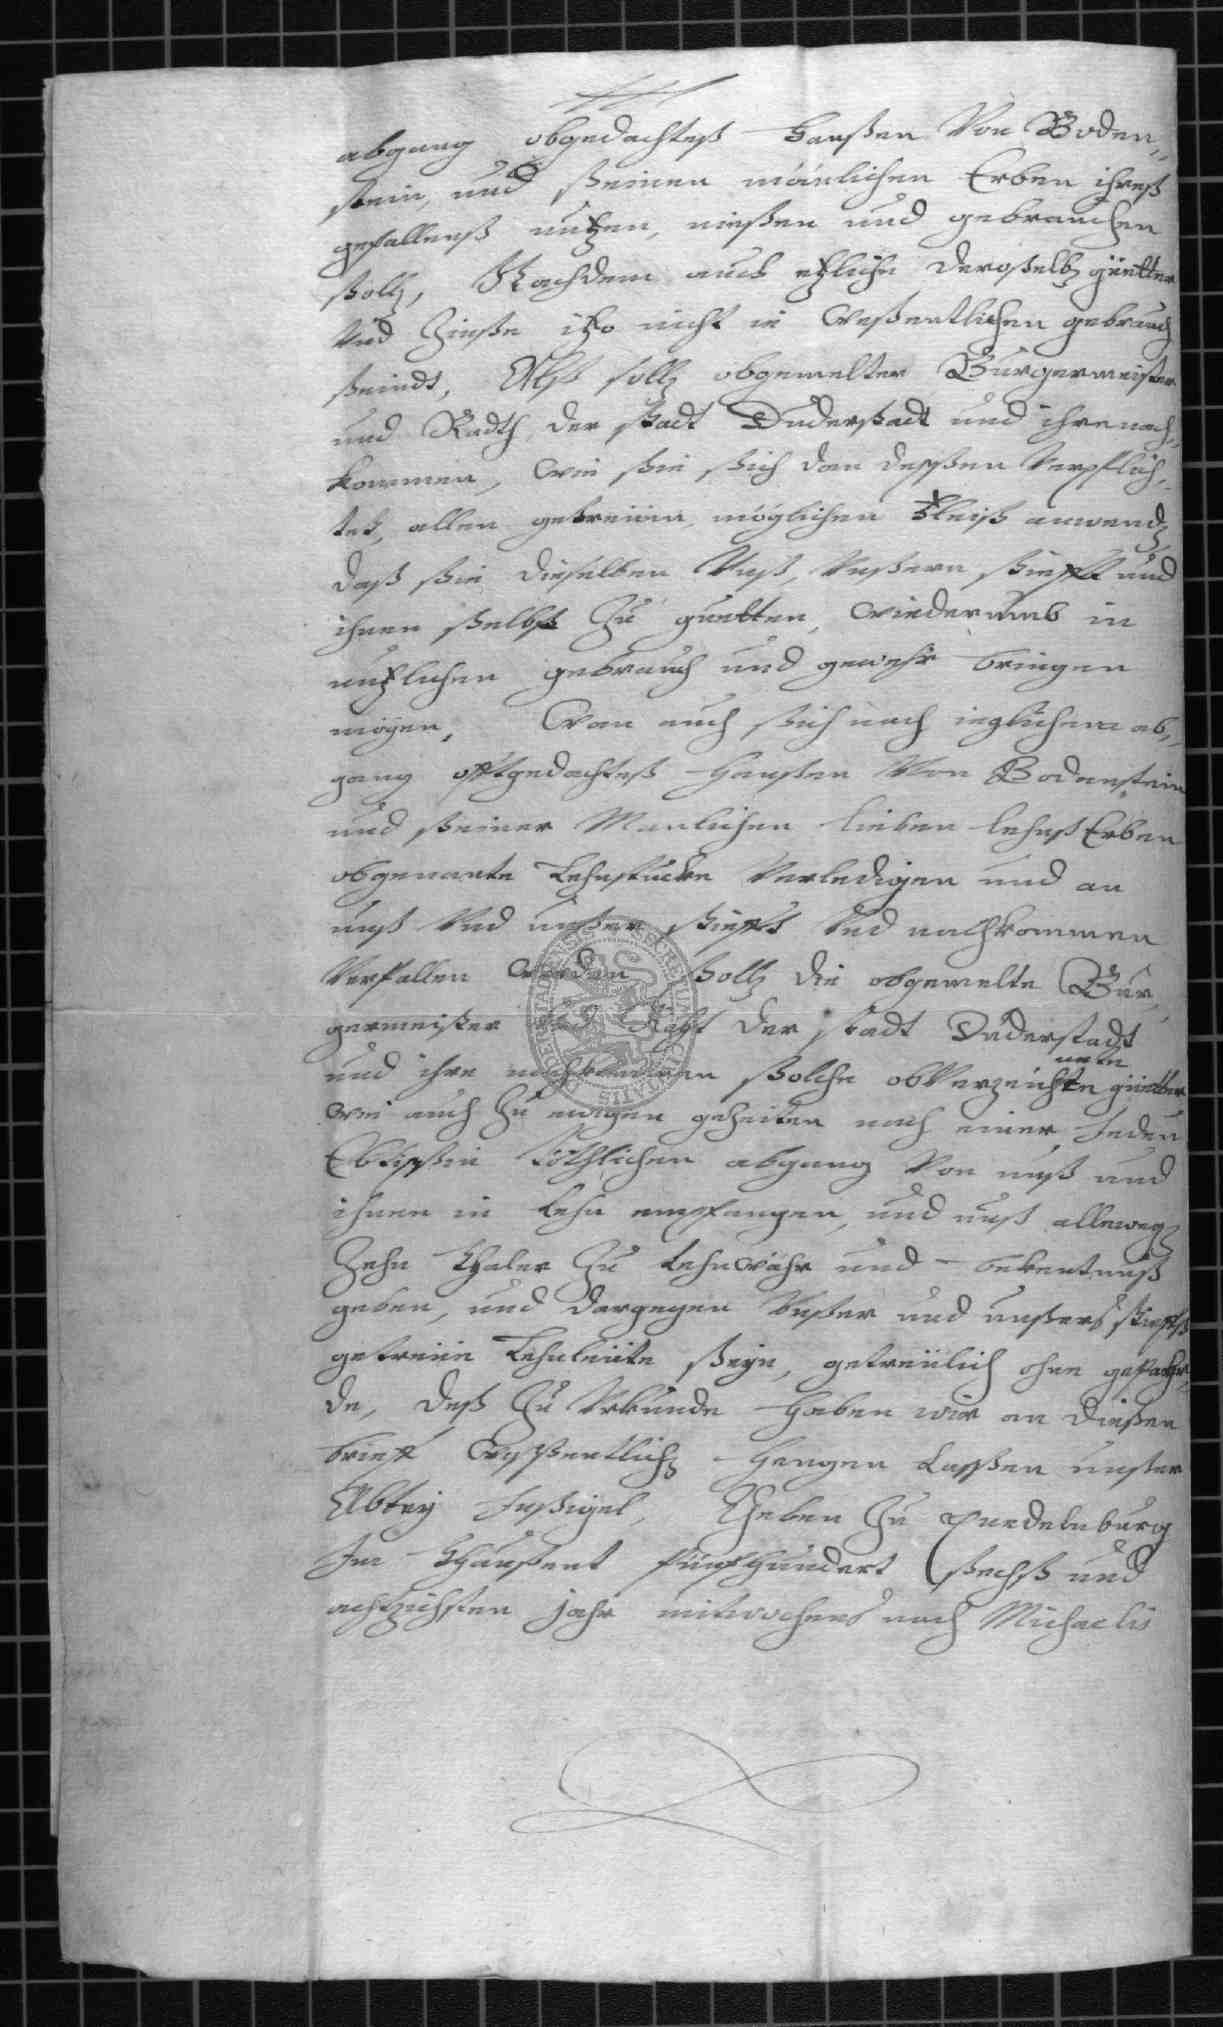 abgang obgedachteß Hanßen Von Boden„
stein, und ßeinen mänlichen Erben ihreß
gefallenß nutzen, nießen und gebrauchen
ßollen, Nachdem auch etzliche deroßelben güetter
Vnd Zinße itzo nicht in weßentlichen gebrauch
ßeindt, Alß sollen obgemelter Bürgermeister
und Radth der stadt Duderstadt und ihre nach„
kommen, wie ßie ßich dan deßßen Verpflich„
tet, allen getreüen möglichen Fleiß anwenden,
daß ßie dieselben Vnß, Vnßern Stiefft und
ihnen ßelbst zu guetten, wiederumb in
nutzlichen gebrauch und gewehr bringen
mögen, Wan auch ßich nach ieglichem ab„
gang offtgedachteß Hanßen Von Bodenstein
und ßeiner Manlichen lieben lehnß Erben
obgenante Lehnstucke Verledigen und an
unß Vnd unßer Stiefft Vnd nachkommen
Verfallen werden, ßollen die obgemelte Bür„
germeister und Raht der stadt Duderstadt
und ihre nachkommen ßolche obVerzeichnete güetter
wie auch zu ewigen gezeiten nach einer Jeden
Ebtißßin Tödtlichen abgang Von unß und
ihnen in Lehn empfangen, und unß allewegen
Zehn thaler zu Lehnwahr und bekentnuß
geben, und dargegen Vnßer und unßers Stieffts
getreüe Lehnleüte ßeyn, getreülich ohne gefaher„
de, deß zu Vrkunde haben wir an dießen
brieff wißßentlich hangen laßßen unßer
Abtey Inßigel, Geben zu Quedelnburg
Im thaußent fünffhundert ßechß und
achtzichsten jahr mitwochens nach Michaelis